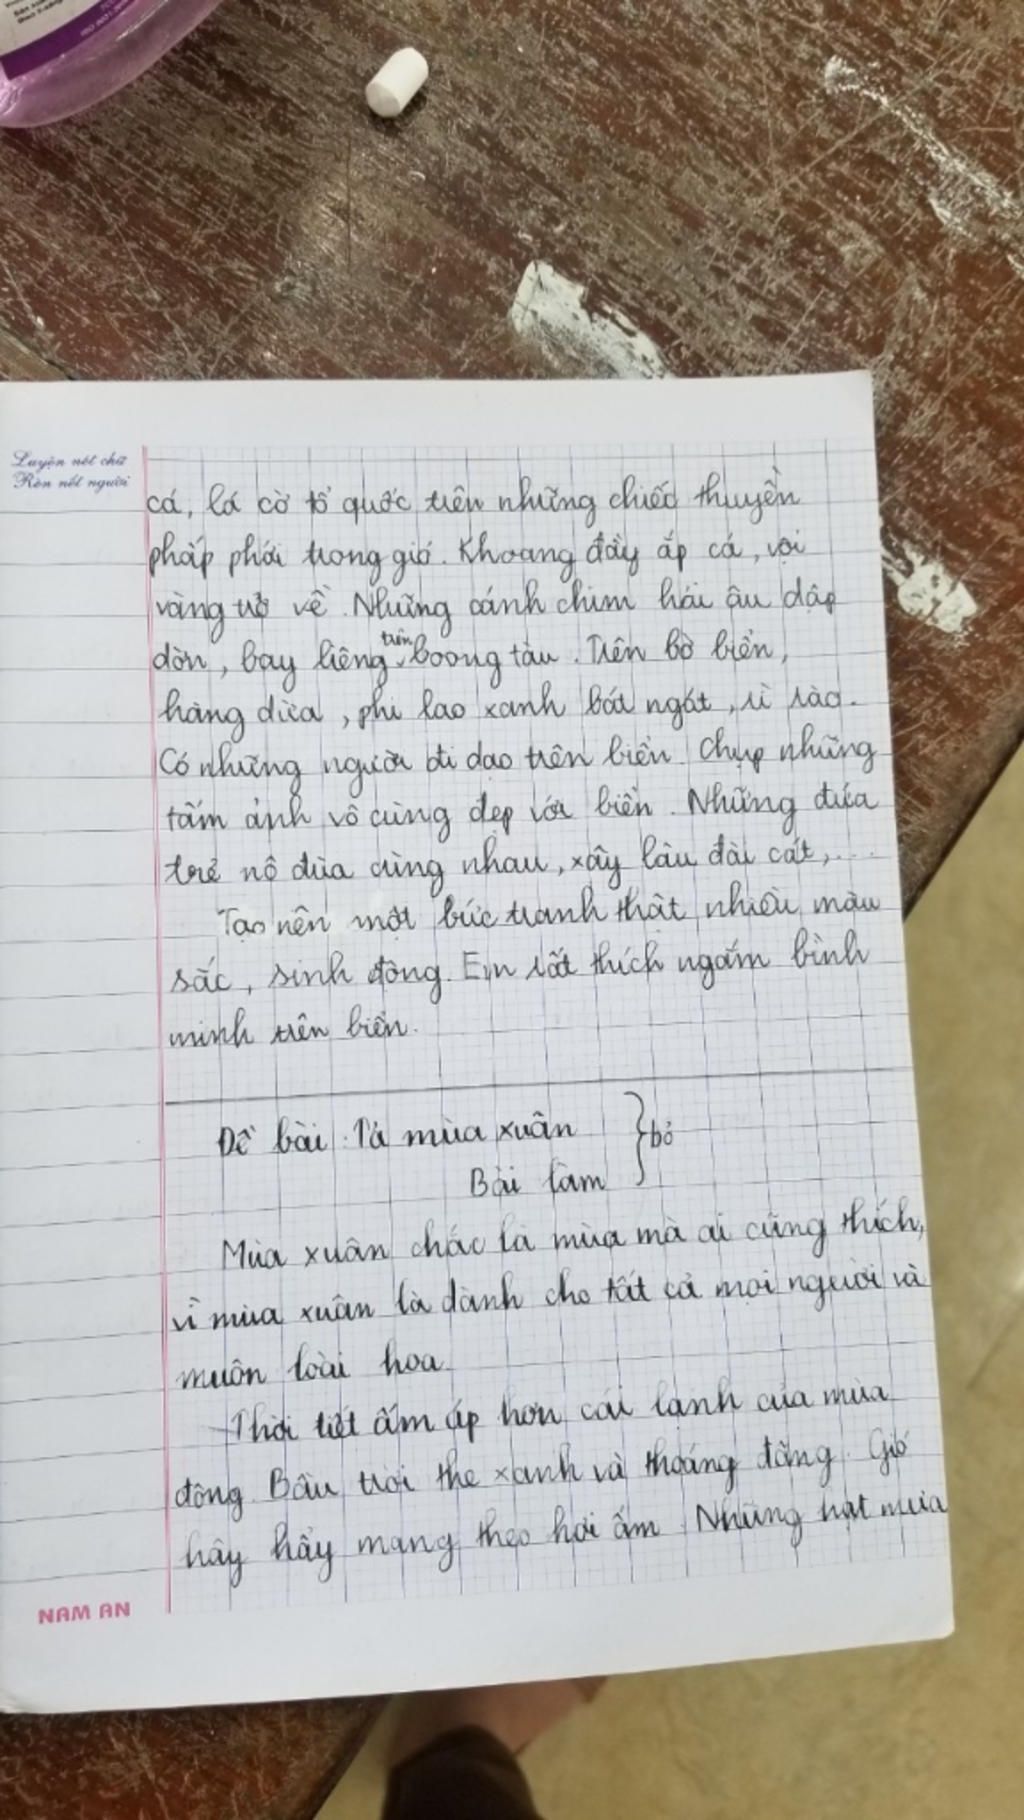 Luyện nét chữ
Rèn nết người
cá, lá cờ tổ quốc trên những chiếc thuyền
phấp phới trong gió. Khoang đầy ắp cá, vội
vàng trở về. Những cánh chim hải âu dập
dờn, bay liệng trên boong tàu. Trên bờ biển,
hàng dừa, phi lao xanh bát ngát, rì rào.
Có những người đi dạo trên biển. Chụp những
tấm ảnh vô cùng đẹp với biển. Những đứa
trẻ nô đùa cùng nhau, xây lâu đài cát,...
Tạo nên một bức tranh thật nhiều màu
sắc, sinh động. Em rất thích ngắm bình
minh trên biển.
Đề bài: Tả mùa xuân } bỏ
Bài làm
Mùa xuân chắc là mùa mà ai cũng thích,
vì mùa xuân là dành cho tất cả mọi người và
muôn loài hoa.
Thời tiết ấm áp hơn cái lạnh của mùa
đông. Bầu trời the xanh và thoáng đãng. Gió
hây hẩy mang theo hơi ấm. Những hạt mưa
NAM AN